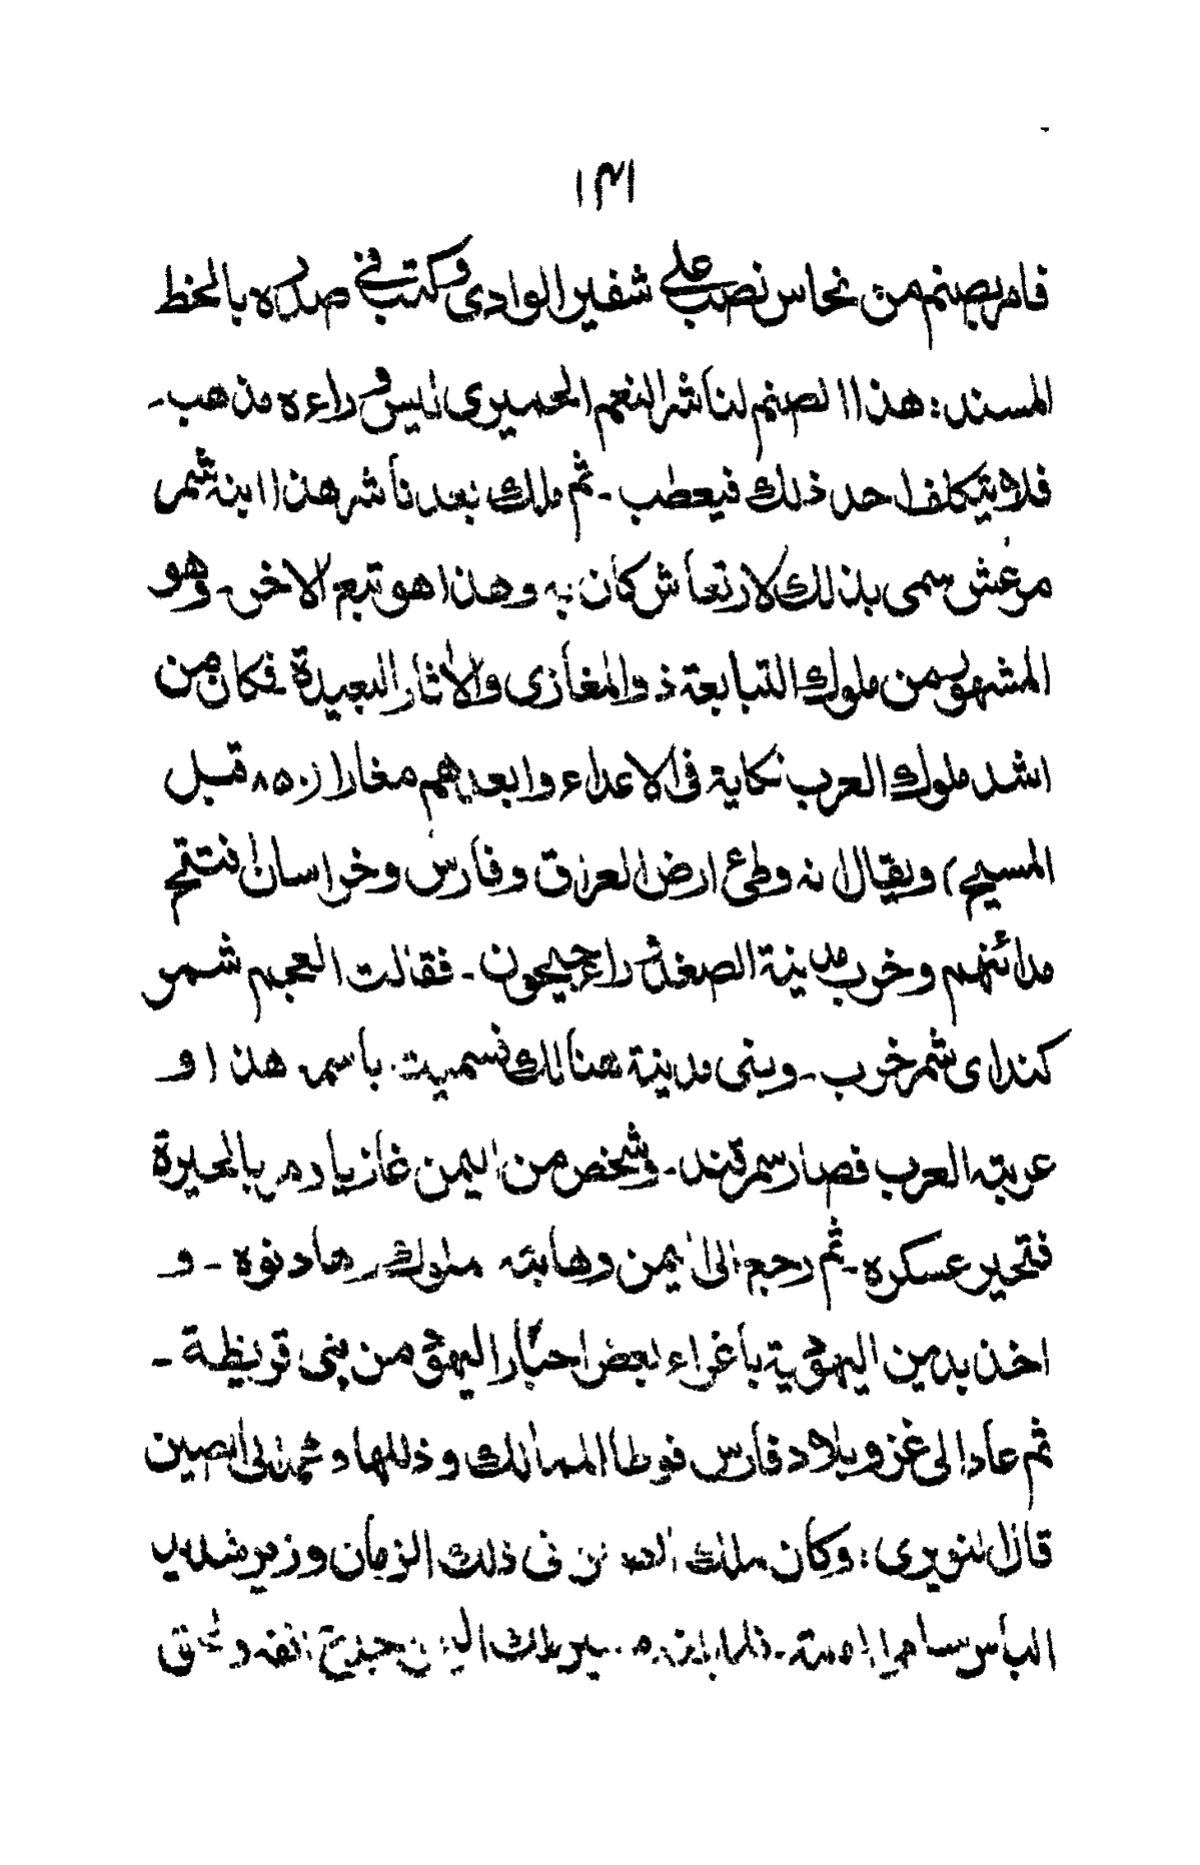 ۱۳۱
فامر بصنم من نحاس نصب على شفير الوادى وكتب فى صدره بالخط
المسند: هذا الصنم لناشر النعم الحميرى ليس وراءه مذهب۔
فلا يتكلف احد ذلك فيعطب۔ ثم ملك بعد ناشر هذا ابنه شمر
مرعش سمى بذلك لارتعاش كان به وهذا هو تبع الاخر۔ وهو
المشهور من ملوك التبابعة ذو المغازى والاثار البعيدة۔ فكان من
اشد ملوك العرب نكاية فى الاعداء وابعدهم مغارا (۸۵۰ قبل
المسيح) ويقال انه وطئ ارض العراق وفارس وخراسان افتتح
مدائنهم وخرب مدينة الصغد وراء جيحون۔ فقالت العجم شمر
كنداى شمر خرب۔ وبنى مدينة هنالك فسميت باسمه هذا و
عربته العرب فصار سمرقند۔ وشخص من اليمن غازيا ومر بالحيرة
فتحير عسكره۔ ثم رجع الى اليمن وهابته ملوك وهادنوه۔ و
اخذ بدين اليهودية باغراء بعض احبار اليهود من بنى قريظة۔
ثم عاد الى غزو بلاد فارس فوطأ الممالك وذللها وعمد الى الصين
قال النويرى: وكان ملك الصين فى ذلك الزمان وزير شديد
الباس ... فلما بلغه مسير ملك اليمن جدع انفه و